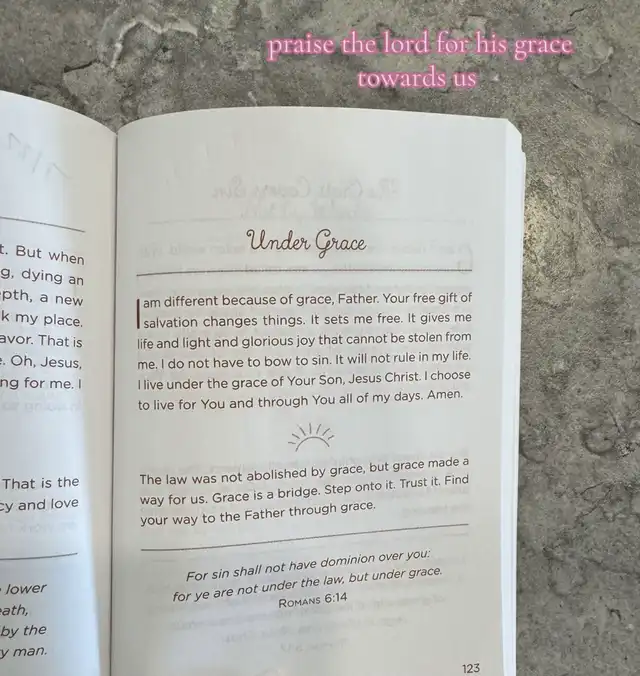 praise the lord for his grace
towards us
t. But when
g, dying an
pth, a new
k my place.
avor. That is
. Oh, Jesus,
ng for me. I
That is the
cy and love
lower
eath,
by the
y man.
Under Grace
I am different because of grace, Father. Your free gift of
salvation changes things. It sets me free. It gives me
life and light and glorious joy that cannot be stolen from
me. I do not have to bow to sin. It will not rule in my life.
I live under the grace of Your Son, Jesus Christ. I choose
to live for You and through You all of my days. Amen.
The law was not abolished by grace, but grace made a
way for us. Grace is a bridge. Step onto it. Trust it. Find
your way to the Father through grace.
For sin shall not have dominion over you:
for ye are not under the law, but under grace.
Romans 6:14
123